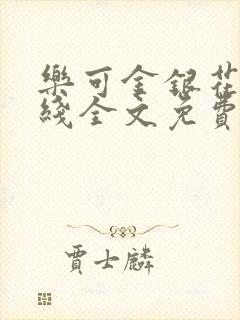 樂可金銀花
綫全文免費
賈士麟